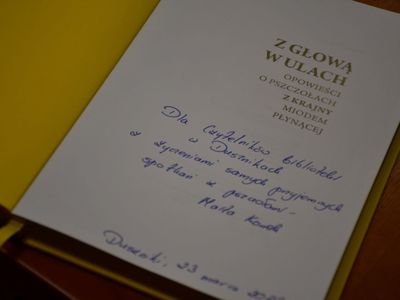 Z GŁOWĄ
W ULACH
OPOWIEŚCI
O PSZCZOŁACH
Z KRAINY
MIODEM
PŁYNĄCEJ
Dla Czytelników biblioteki
w Dusznikach
z życzeniami samych przyjemnych
spotkań z pszczołami
Marta
Duszniki, 23 marca